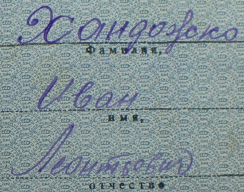 Хандожко
Фамилия,
Иван
имя,
Леонтьевич
отчество